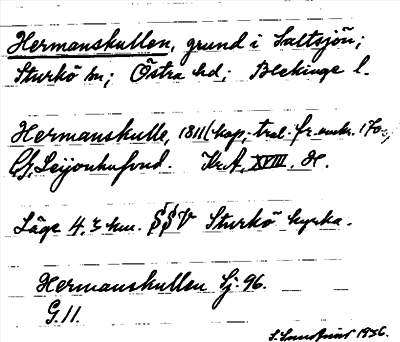 Hermanskullen, grund i Saltsjön;
Sturkö sn; Östra hd; Blekinge l.
Hermanskulle, 1811 (kop. trol. fr. omkr. 170
G. Leijonhufvud. Kr.A. XVIII. H.
Läge 4.3 km. SSV Sturkö kyrka.
Hermanskullen Sj. 96.
G.11.
1936.